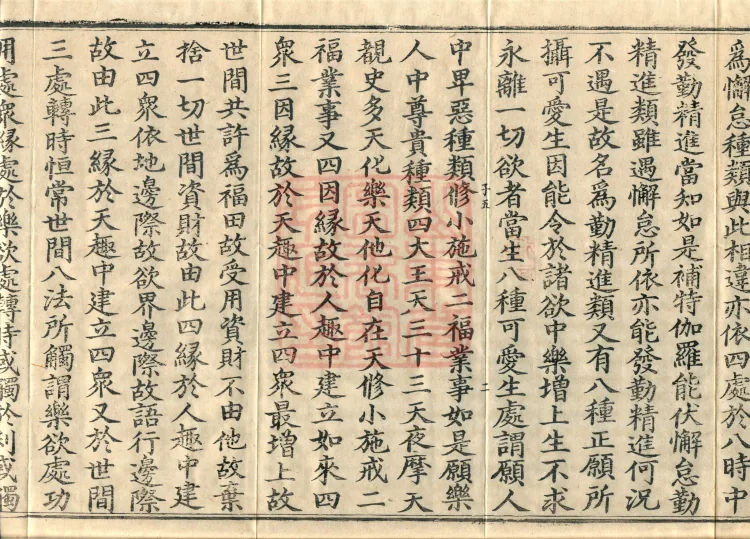 為懈怠種類與此相違亦依四處於八時中
發勤精進當知如是補特伽羅能伏懈怠勤
精進類雖遇懈怠所依亦能發勤精進何況
不遇是故名為勤精進類又有八種正願所
攝可愛生因能令於諸欲中樂增上生不求
永離一切欲者當生八種可愛生處謂願人
子五
二
中卑惡種類修小施戒二福業事如是願樂
人中尊貴種類四大王天三十三天夜摩天
覩史多天化樂天他化自在天修小施戒二
福業事又四因緣故於人趣中建立如來四
眾三因緣故於天趣中建立四眾最增上故
世間共許為福田故受用資財不由他故棄
捨一切世間資財故由此四緣於人趣中建
立四眾依地邊際故欲界邊際故語行邊際
故由此三緣於天趣中建立四眾又於世間
三處轉時恒常世間八法所觸謂樂欲處功
用處眾緣處於樂欲處轉時或觸於利或觸